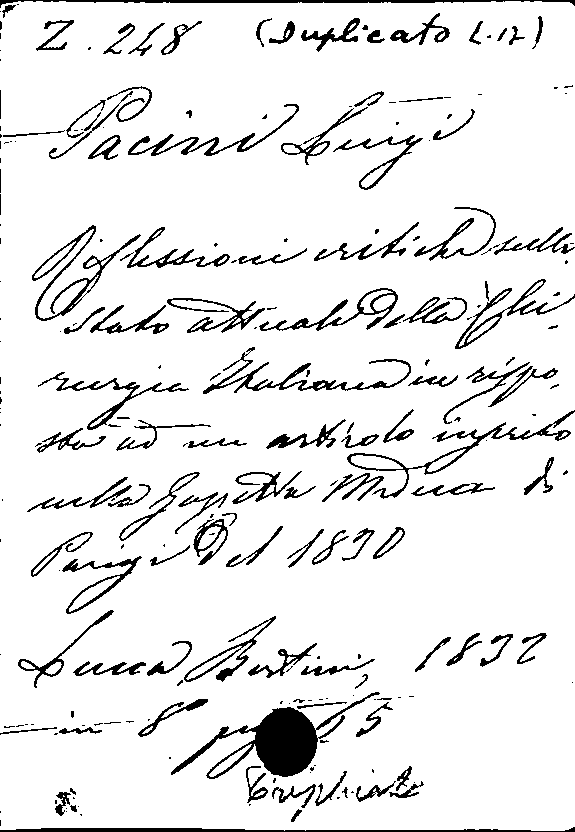 Z. 248 (Duplicato L.17)
Pacini Luigi
Riflessioni critiche sullo
stato attuale della Chi-
rurgia Italiana in rispo-
sta ad un articolo inserito
nella Gazzetta Medica di
Parigi del 1830
Lucca, Bertini, 1832
in 8° pag 65
Triplicato